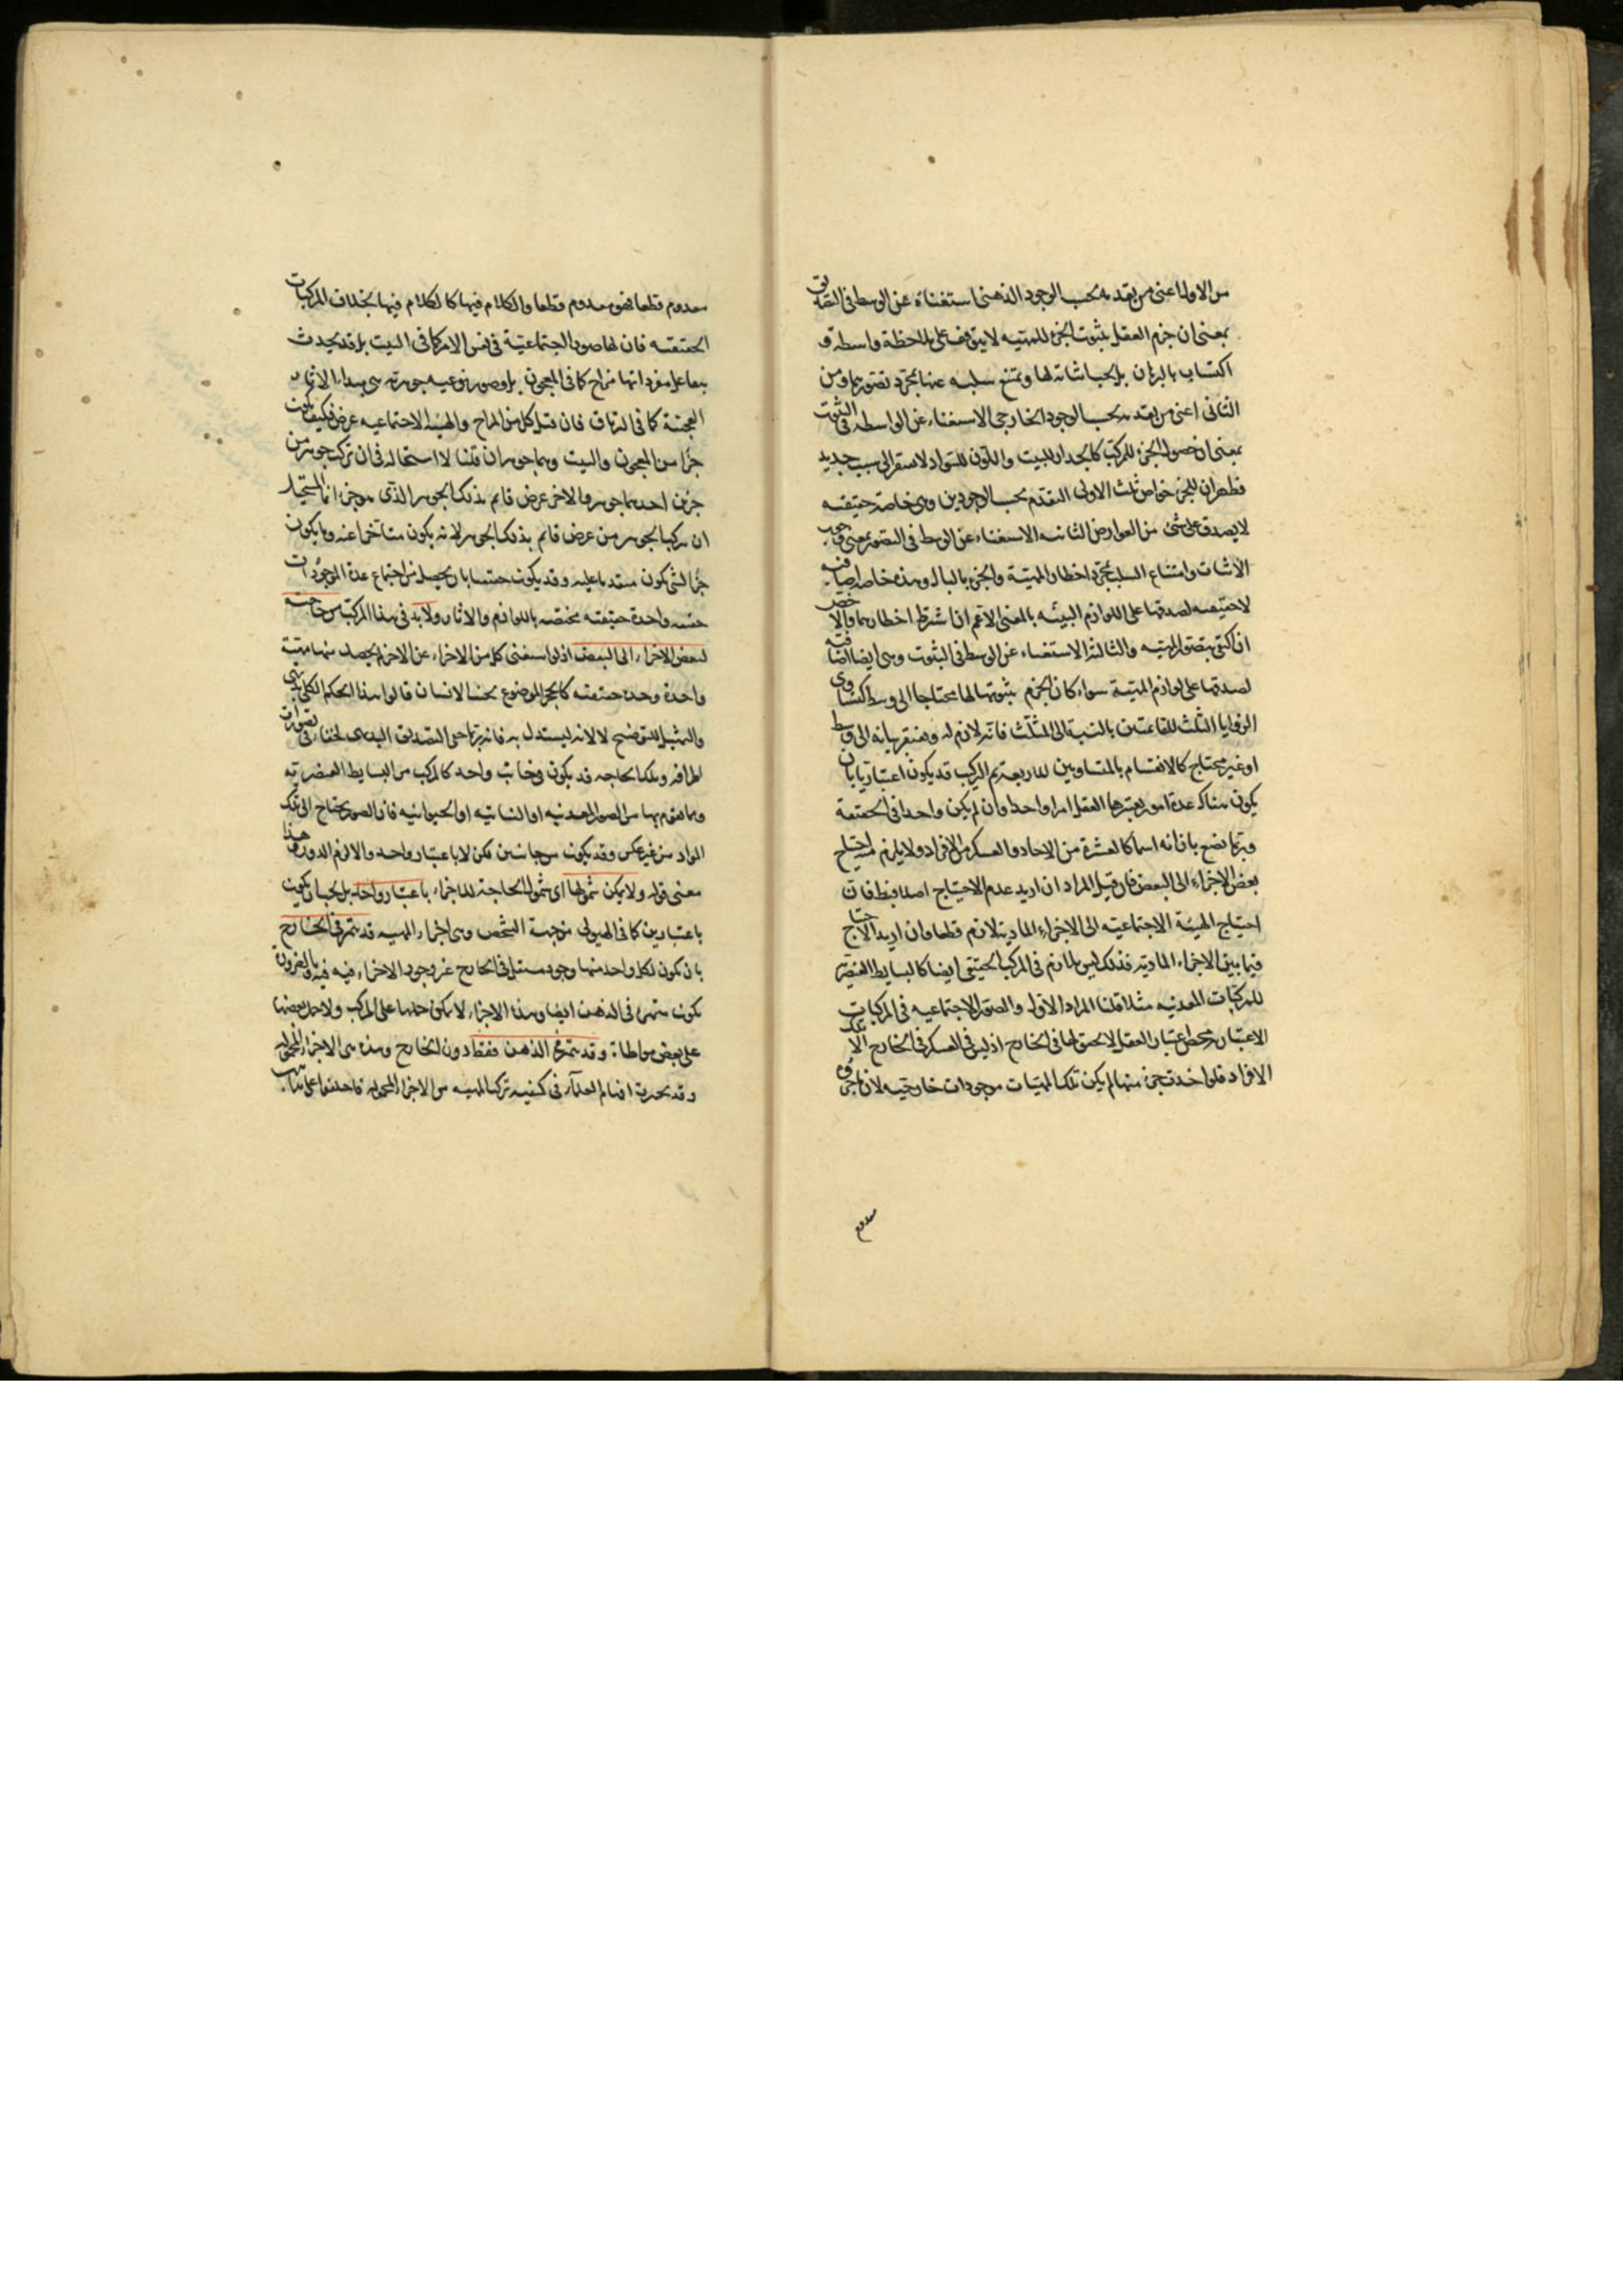 من الاول اعنى من تقدمه بحسب الوجود الذهنى استغناؤه عن الوسط فى التصديق
بمعنى ان جزم العقل بثبوت الجزء للمهية لا يتوقف على ملاحظة واسطة و
اكتساب بالبرهان بل يجب اثباته لها ويمتنع سلبه عنها بمجرد تصورهما ومن
الثانى اعنى من تقدمه بحسب الوجود الخارجى الاستغناء عن الواسطة فى الثبوت
بمعنى ان حصول الجزء للمركب كالجدار للبيت واللون للسواد لا يفتقر الى سبب جديد
فظهر ان للجزء خواص ثلث الاولى التقدم بحسب الوجودين وهى خاصة حقيقية
لا يصدق على شئ من العوارض الثانية الاستغناء عن الوسط فى التصور بمعنى وجوب
الاثبات وامتناع السلب بمجرد اخطار المهية والجزء بالبال وهذه خاصة اضافية
لا حقيقية لصدقها على اللوازم البينة بالمعنى الاعم ان اشترط اخطارهما والاخص
ان اكتفى بتصور المهية والثالثة الاستغناء عن الوسط فى الثبوت وهى ايضا اضافية
لصدقها على لوازم المهية سواء كان الجزم بثبوتها لها محتاجا الى وسط كتساوى
الزوايا الثلث للقائمتين بالنسبة الى المثلث فانه لازم له ويفتقر بيانه الى وسط
او غير محتاج كالانقسام بالمتساويين للاربعة ثم التركيب قد يكون اعتباريا بان
يكون هناك عدة امور يعتبرها العقل امرا واحدا وان لم يكن واحدا فى الحقيقة
وربما يضع بازائه اسما كالعشرة من الاحاد والعسكر من الافراد ولا يلزم احتياج
بعض الاجزاء الى البعض فان قيل المراد ان اريد عدم الاحتياج اصلا فبط فان
احتياج الهيئة الاجتماعية الى الاجزاء المادية لازم قطعا وان اريد الاحتياج
فيما بين الاجزاء المادية فذلك ليس بلازم فى المركب الحقيقى ايضا كالبسايط العنصرية
للمركبات المعدنية مثلا قلنا المراد الاول والصورة الاجتماعية فى المركبات
الاعتبارية محض اعتبار العقل لا تحقق لها فى الخارج اذ ليس فى العسكر فى الخارج الا تلك
الافراد فلو اخذت جزء منها لم يكن تلك المهيات موجودات خارجية لان ما جزؤه
معدوم
معدوم قطعا فهو معدوم قطعا والكلام فيها كالكلام فيها بخلاف المركبات
الحقيقية فان لها صورة اجتماعية فى نفس الامر كما فى البيت بل قد يحدث
بتفاعل مفرداتها مزاج كما فى المعجون بل وصورة نوعية جوهرية هى مبداء الاثار
العجيبة كما فى الترياق فان قيل كل من المزاج والهيئة الاجتماعية عرض فكيف يكون
جزأ من المعجون والبيت وهما جوهران قلنا لا استحالة فى ان تركب جوهر من
جزئين احدهما جوهر والاخر عرض قايم بذلك الجوهر الذى هو جزء انما المستحيل
ان تركب الجوهر من عرض قايم بذلك الجوهر لانه يكون متأخرا عنه وما يكون
جزأ لشئ يكون متقدما عليه وقد يكون حقيقيا بان يحصل من اجتماع عدة الموجودات
حقيقة واحدة حقيقية مختصة باللوازم والاثار ولا بد فى هذا المركب من حاجة
لبعض الاجزاء الى البعض اذ لو استغنى كل من الاجزاء عن الاخر لم يحصل منها مهية
واحدة وحدة حقيقية كالحجر الموضوع بجنب الانسان قالوا هذا الحكم الكلى بديهى
والتمثيل للتوضيح لا لانه ليستدل به فانه ربما خفى التصديق البديهى لخفاء فى تصورات
اطرافه وتلك الحاجة قد يكون من جانب واحد كالمركب من البسايط العنصرية
وما يقوم بها من الصور المعدنية او النباتية او الحيوانية فان الصورة تحتاج الى تلك
المواد من غير عكس وقد يكون من جانبين لكن لا باعتبار واحد والا لزم الدور هذا
معنى قوله ولا يمكن شمولها اى شمول الحاجة للاجزاء باعتبار واحد بل يجب ان يكون
باعتبارين كما فى الهيولى من جهة التشخص وهى اجزاء المهية قد يتميز فى الخارج
بان يكون لكل واحد منها وجود مستقل فى الخارج غير وجود الاخر فيه وبالضرورة
يكون متميزة فى الذهن ايضا وهذه الاجزاء لا يمكن حملها على المركب ولا حمل بعضها
على بعض مواطاة وقد يتميز فى الذهن فقط دون الخارج وهذه هى الاجزاء المحمولة
وقد تحيرت افهام العلماء فى كيفية تركب المهية من الاجزاء المحمولة فاختلفوا على مذاهب